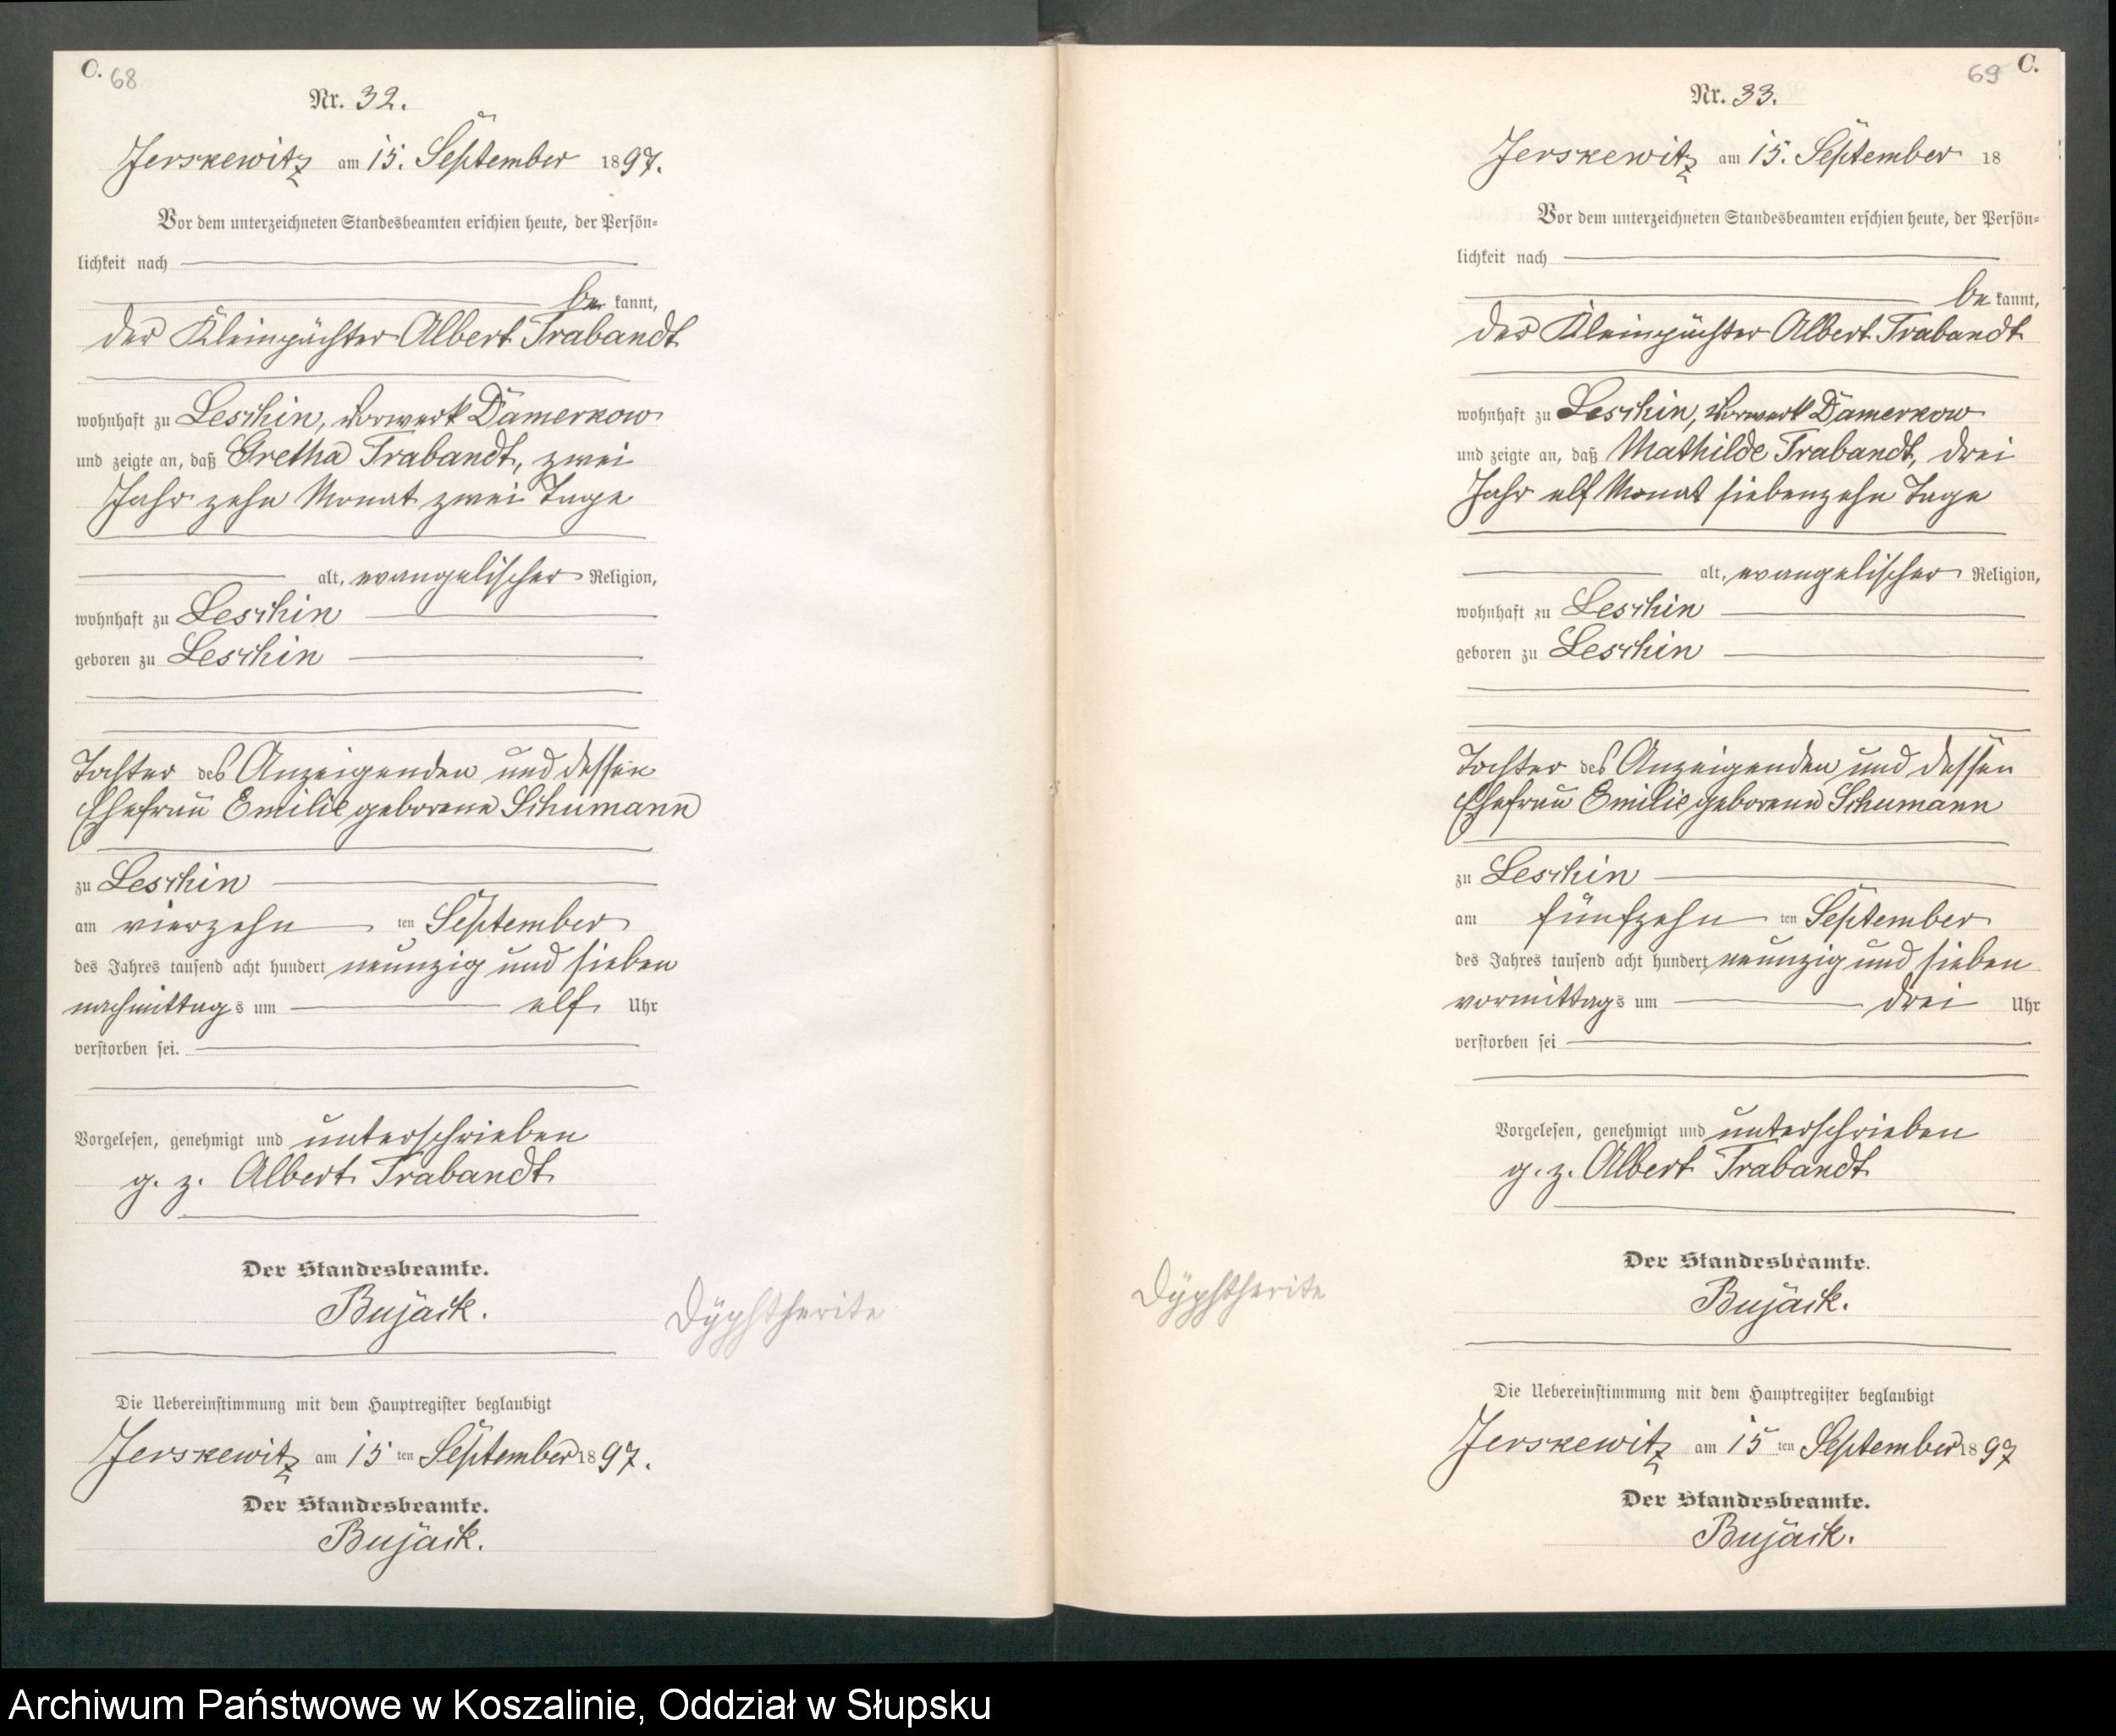 C. 68
Nr. 32.
Jerskewitz am 15. September 1897.
Vor dem unterzeichneten Standesbeamten erschien heute, der Persön-
lichkeit nach
be kannt,
der Kleinpächter Albert Trabandt
wohnhaft zu Leschin, Vorwerk Damerkow
und zeigte an, daß Gretha Trabandt, zwei
Jahr zehn Monat zwei Tage
alt, evangelischer Religion,
wohnhaft zu Leschin
geboren zu Leschin
Tochter des Anzeigenden und dessen
Ehefrau Emilie geborene Schumann
zu Leschin
am vierzehn ten September
des Jahres tausend acht hundert neunzig und sieben
nachmittags um elf Uhr
verstorben sei.
Vorgelesen, genehmigt und unterschrieben
g. z. Albert Trabandt
Der Standesbeamte.
Bujack.
Dyphtherite
Die Uebereinstimmung mit dem Hauptregister beglaubigt
Jerskewitz am 15 ten September 1897.
Der Standesbeamte.
Bujack.
69 C.
Nr. 33.
Jerskewitz am 15. September 18
Vor dem unterzeichneten Standesbeamten erschien heute, der Persön-
lichkeit nach
be kannt,
der Kleinpächter Albert Trabandt
wohnhaft zu Leschin, Vorwerk Damerkow
und zeigte an, daß Mathilde Trabandt, drei
Jahr elf Monat siebenzehn Tage
alt, evangelischer Religion,
wohnhaft zu Leschin
geboren zu Leschin
Tochter des Anzeigenden und dessen
Ehefrau Emilie geborene Schumann
zu Leschin
am fünfzehn ten September
des Jahres tausend acht hundert neunzig und sieben
vormittags um drei Uhr
verstorben sei
Vorgelesen, genehmigt und unterschrieben
g. z. Albert Trabandt
Der Standesbeamte.
Bujack.
Dyphtherite
Die Uebereinstimmung mit dem Hauptregister beglaubigt
Jerskewitz am 15 ten September 1897
Der Standesbeamte.
Bujack.
Archiwum Państwowe w Koszalinie, Oddział w Słupsku